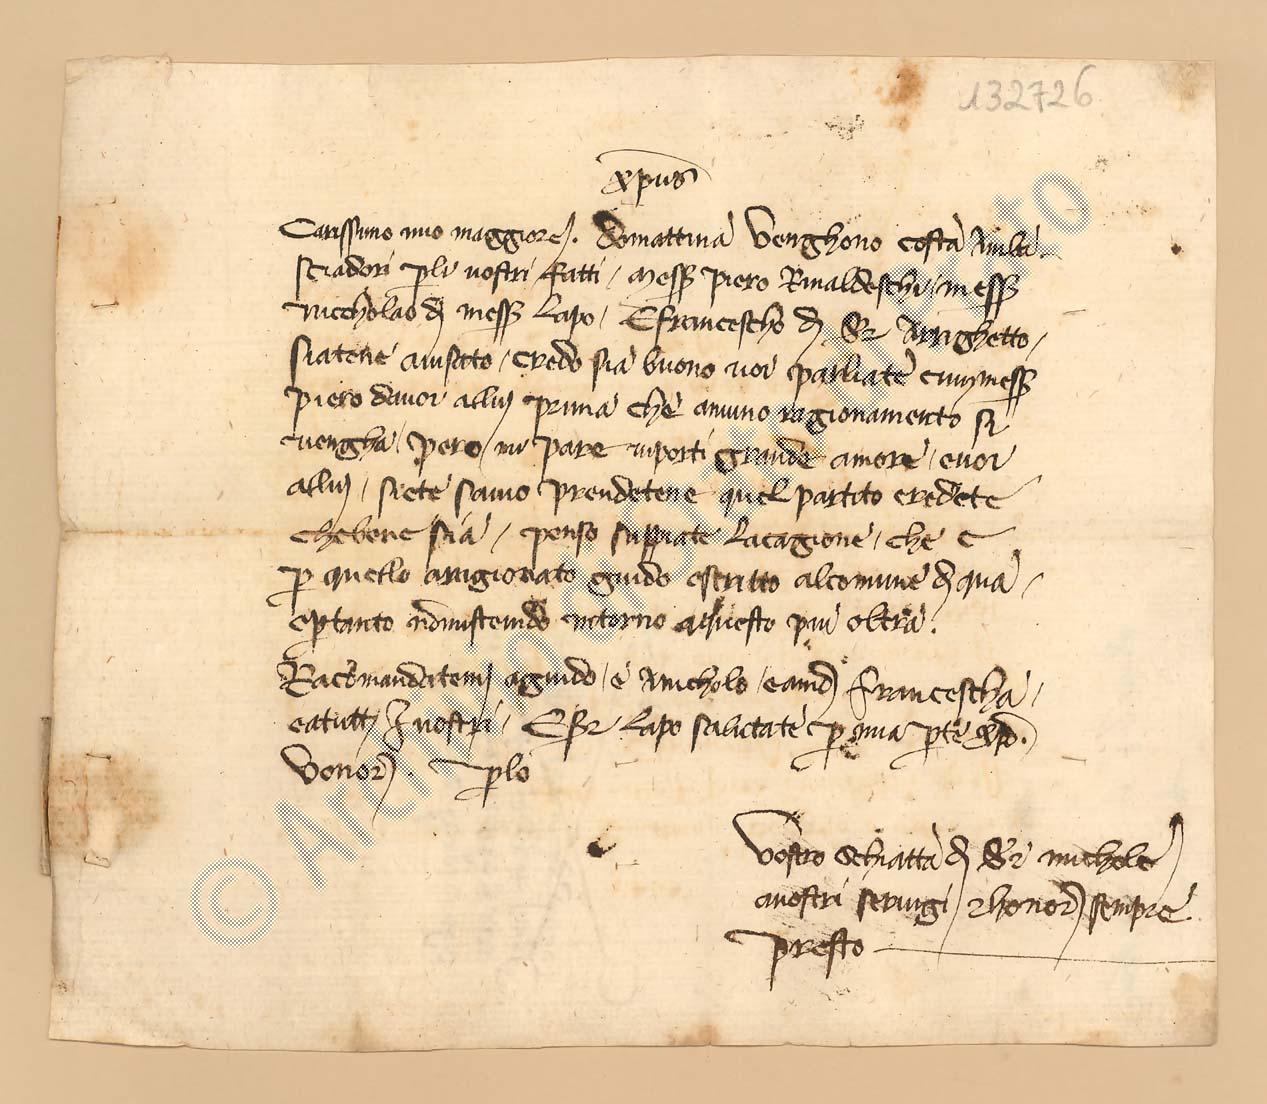 132726
xpus
Carissimo mio maggiore. Domattina venghono costa Amba
sciadori pli vostri fatti / Mess Piero Rinaldeschi / mess
Niccholao d mess Lapo / E francescho d Sr Arrighetto /
siatene avisato / credo sia buono voi parliate cum mess
Piero davoi allui prima che a niuno ragionamento si
vengha / pero mi pare vi porti grande amore / e voi
allui / siete savio prendetene quel partito credete
che bene sia / penso sappiate la cagione / che e
p quello arrigionato guido e scritto al comune d qua /
e ptanto nomistendo intorno aquesto piu oltra.
Raccomandatemi aguido / e Anicholo / e amd francescha /
e a tutti I vostri. E Sr Lapo salutate p mia pte xpo.
Vonor. plo
Vostro Schiatta d Sr michele
avostri servigi / honor sempre
presto
© Archivio di Stato di Prato